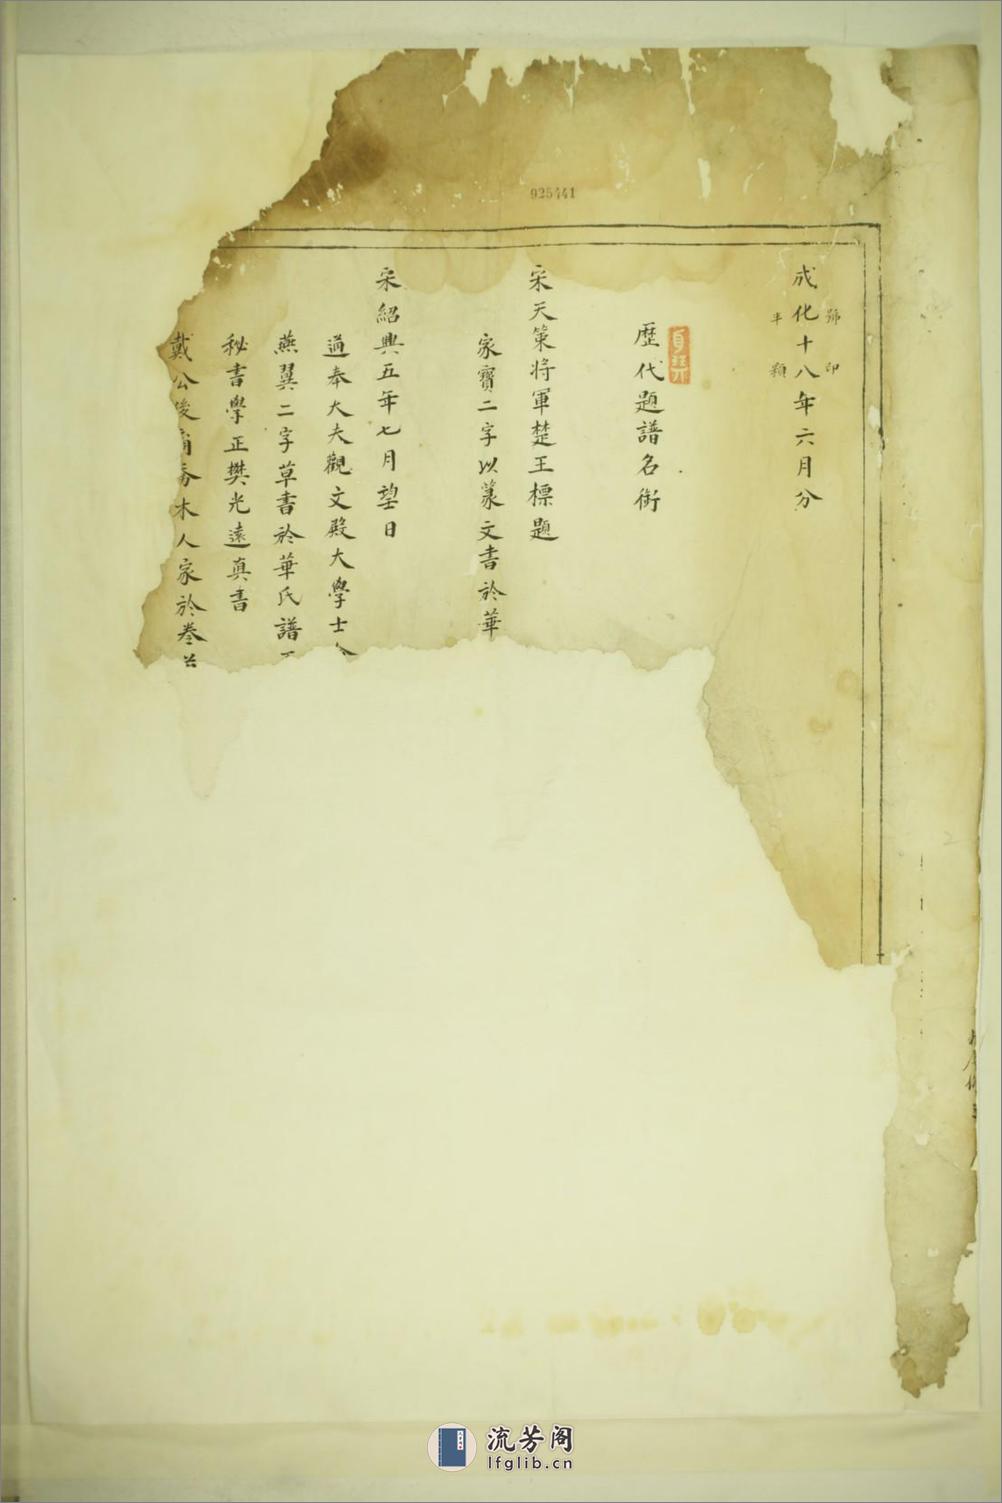 925441
號印
成化十八年六月分
半顆
歷代題譜名銜
宋天策將軍楚王標題
家寶二字以篆文書於華
宋紹興五年七月望日
通奉大夫觀文殿大學士
燕翼二字草書於華氏譜
秘書學正樊光遠真書
戴公後裔
木人家於卷
流芳阁
lfglib.cn